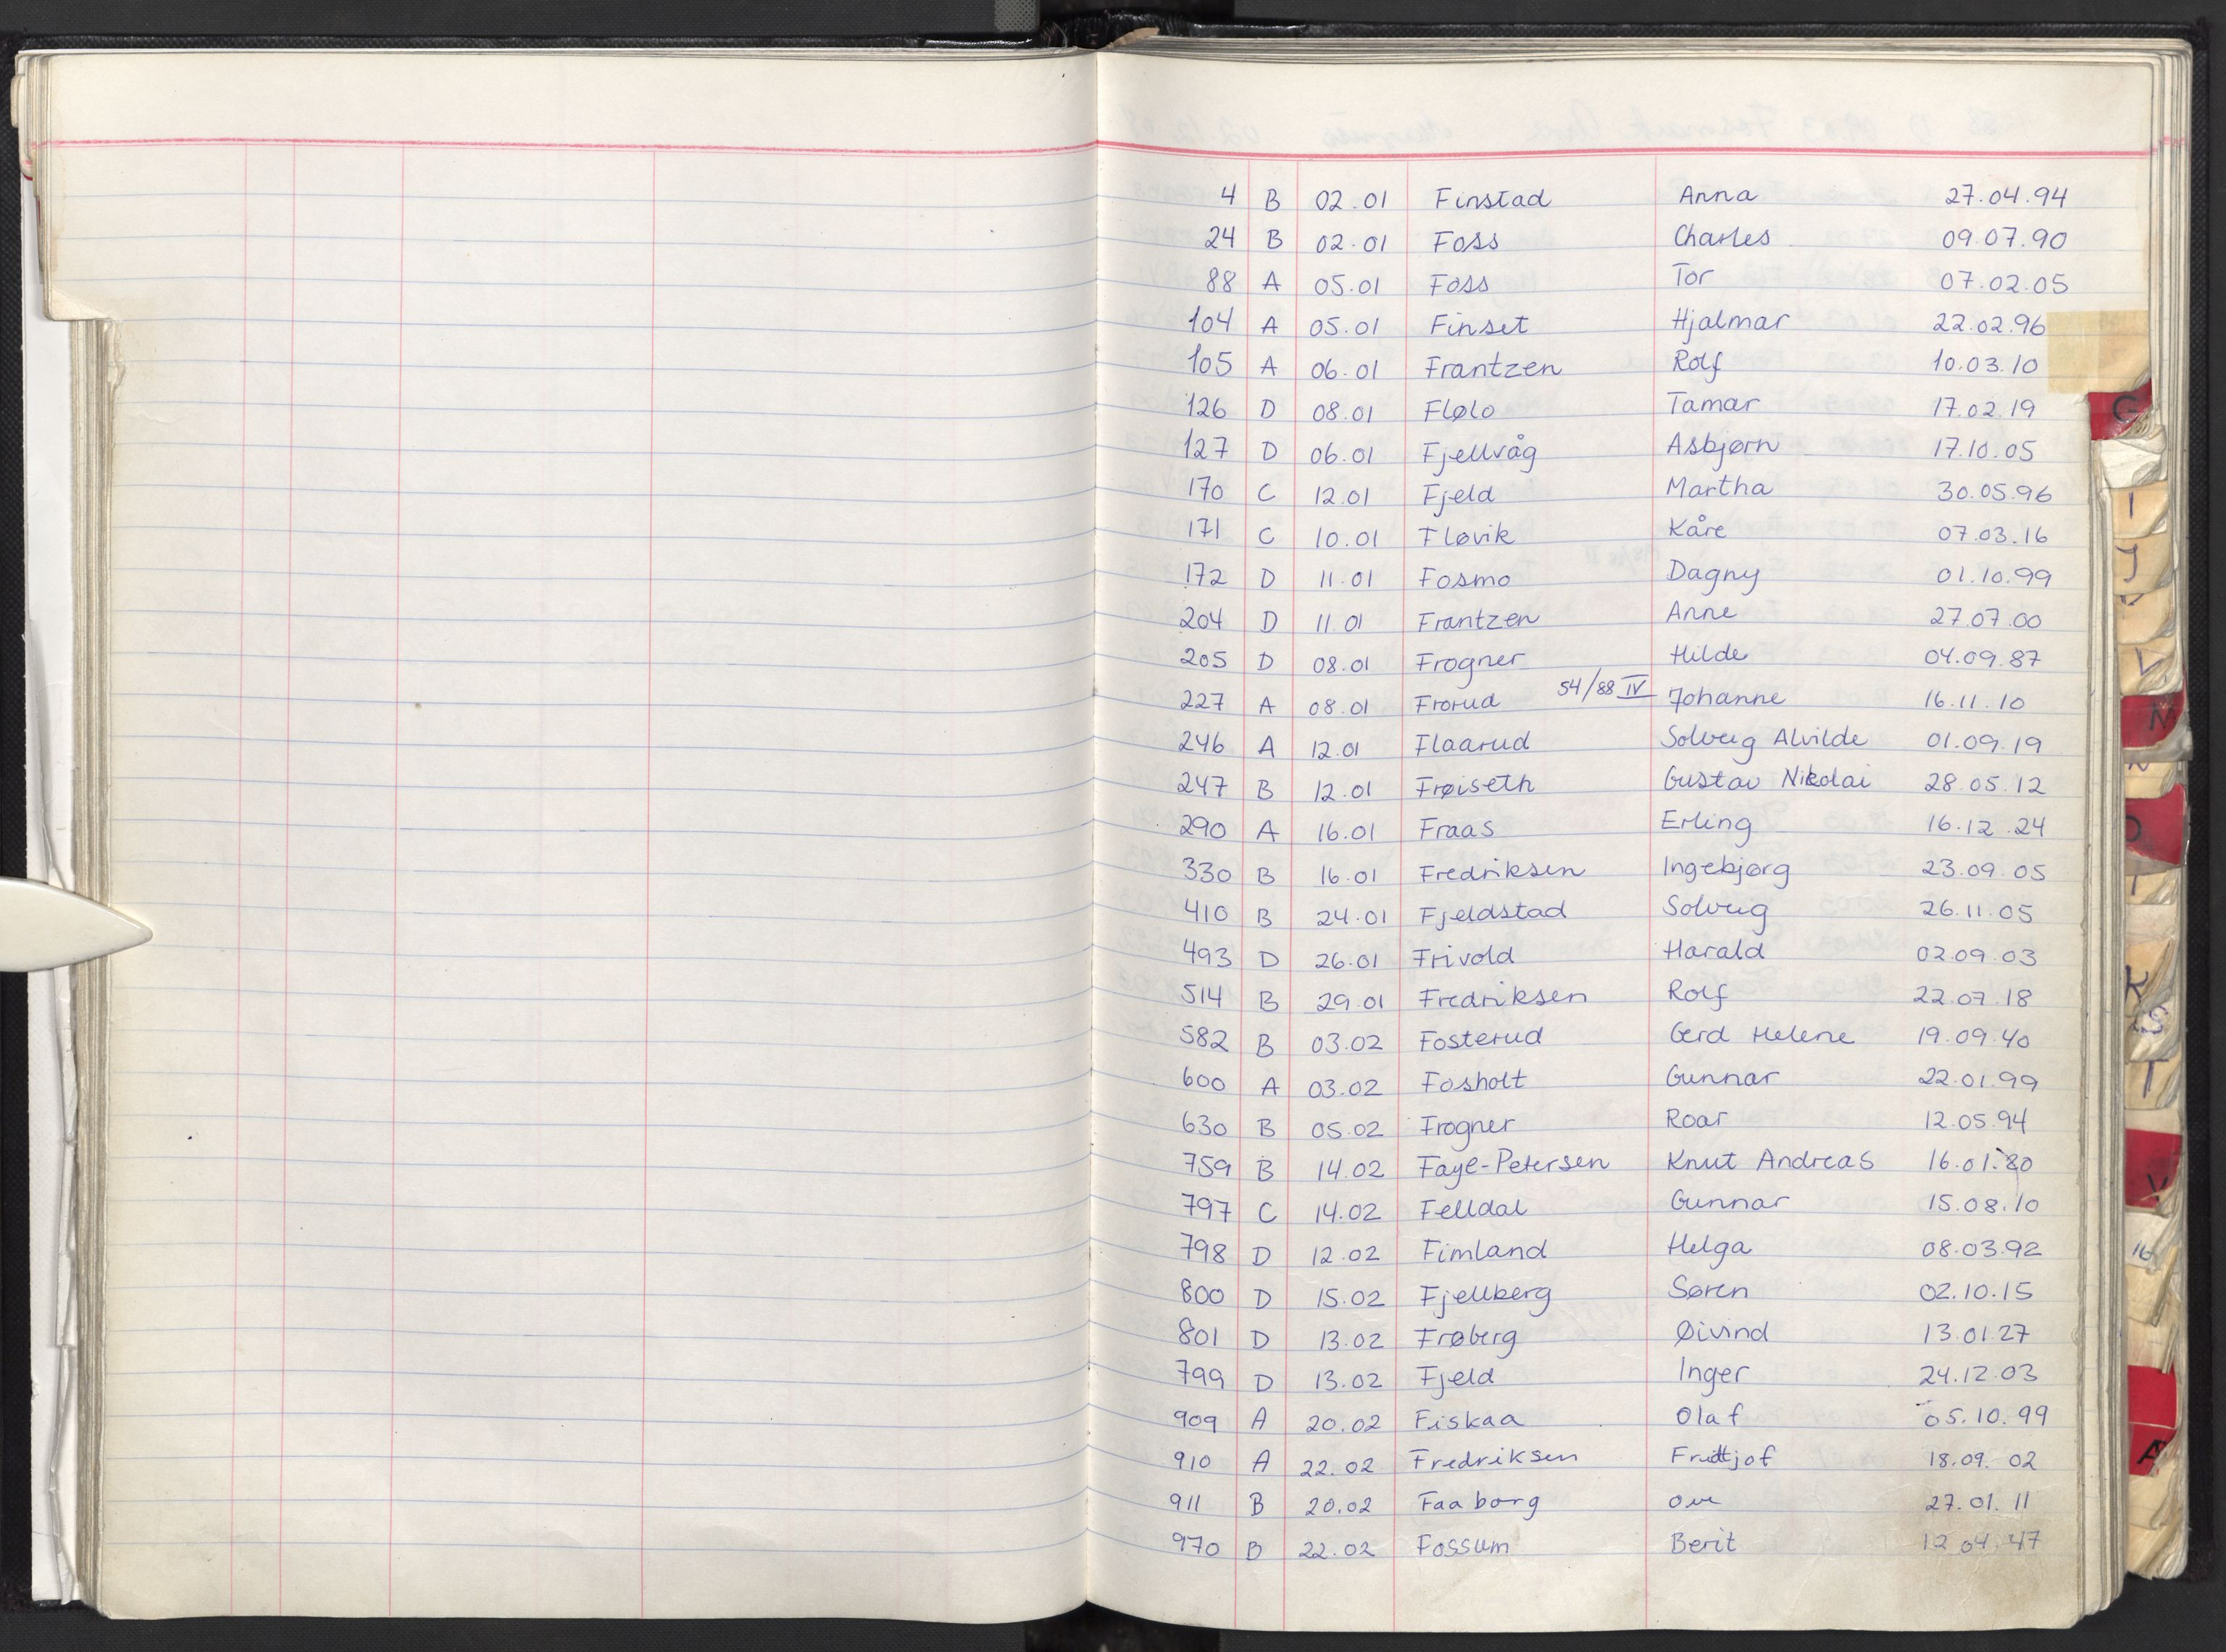 4 B 02.01 Finstad Anna 27.04.94
24 B 02.01 Foss Charles 09.07.90
88 A 05.01 Foss Tor 07.02.05
104 A 05.01 Finset Hjalmar 22.02.96
105 A 06.01 Frantzen Rolf 10.03.10
126 D 08.01 Flølo Tamar 17.02.19
127 D 06.01 Fjellvåg Asbjørn 17.10.05
170 C 12.01 Fjeld Martha 30.05.96
171 C 10.01 Fløvik Kåre 07.03.16
172 D 11.01 Fosmo Dagny 01.10.99
204 D 11.01 Frantzen Anne 27.07.00
205 D 08.01 Frogner Hilde 04.09.87
227 A 08.01 Frorud 54/88 IV Johanne 16.11.10
246 A 12.01 Flaarud Solveig Alvilde 01.09.19
247 B 12.01 Frøiseth Gustav Nikolai 28.05.12
290 A 16.01 Fraas Erling 16.12.24
330 B 16.01 Fredriksen Ingebjørg 23.09.05
410 B 24.01 Fjeldstad Solveig 26.11.05
493 D 26.01 Frivold Harald 02.09.03
514 B 29.01 Fredriksen Rolf 22.07.18
582 B 03.02 Fosterud Gerd Helene 19.09.40
600 A 03.02 Fosholt Gunnar 22.01.99
630 B 05.02 Frogner Roar 12.05.94
759 B 14.02 Faye-Petersen Knut Andreas 16.01.20
797 C 14.02 Felldal Gunnar 15.08.10
798 D 12.02 Fimland Helga 08.03.92
800 D 15.02 Fjellberg Søren 02.10.15
801 D 13.02 Frøberg Øivind 13.01.27
799 D 13.02 Fjeld Inger 24.12.03
909 A 20.02 Fiskaa Olaf 05.10.99
910 A 22.02 Fredriksen Fridtjof 18.09.02
911 B 20.02 Faaborg Ove 27.01.11
970 B 22.02 Fossum Berit 12.04.47
G
I
J
V
M
K
S
T
V
A